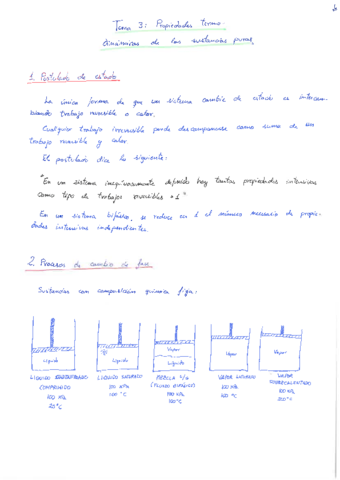 Tema 3: Propiedades termo-
dinámicas de las sustancias puras
1. Postulado de estado
La única forma de que un sistema cambie de estado es intercam-
biando trabajo reversible o calor.
Cualquier trabajo irreversible puede descomponerse como suma de un
trabajo reversible y calor.
El postulado dice lo siguiente:
"En un sistema inequívocamente definido hay tantas propiedades intensivas
como tipo de trabajos reversibles +1"
En un sistema bifásico, se reduce en 1 el número necesario de propie-
dades intensivas independientes.
2. Procesos de cambio de fase
Sustancias con composición química fija:
Líquido
Líquido
Vapor
Líquido
Vapor
Vapor
LÍQUIDO
COMPRIMIDO
100 kPa
20 °C
LÍQUIDO SATURADO
100 kPa
100 °C
MEZCLA L/V
(FLUIDO BIFÁSICO)
100 kPa
100 °C
VAPOR SATURADO
100 kPa
100 °C
VAPOR
SOBRECALENTADO
100 kPa
200 °C